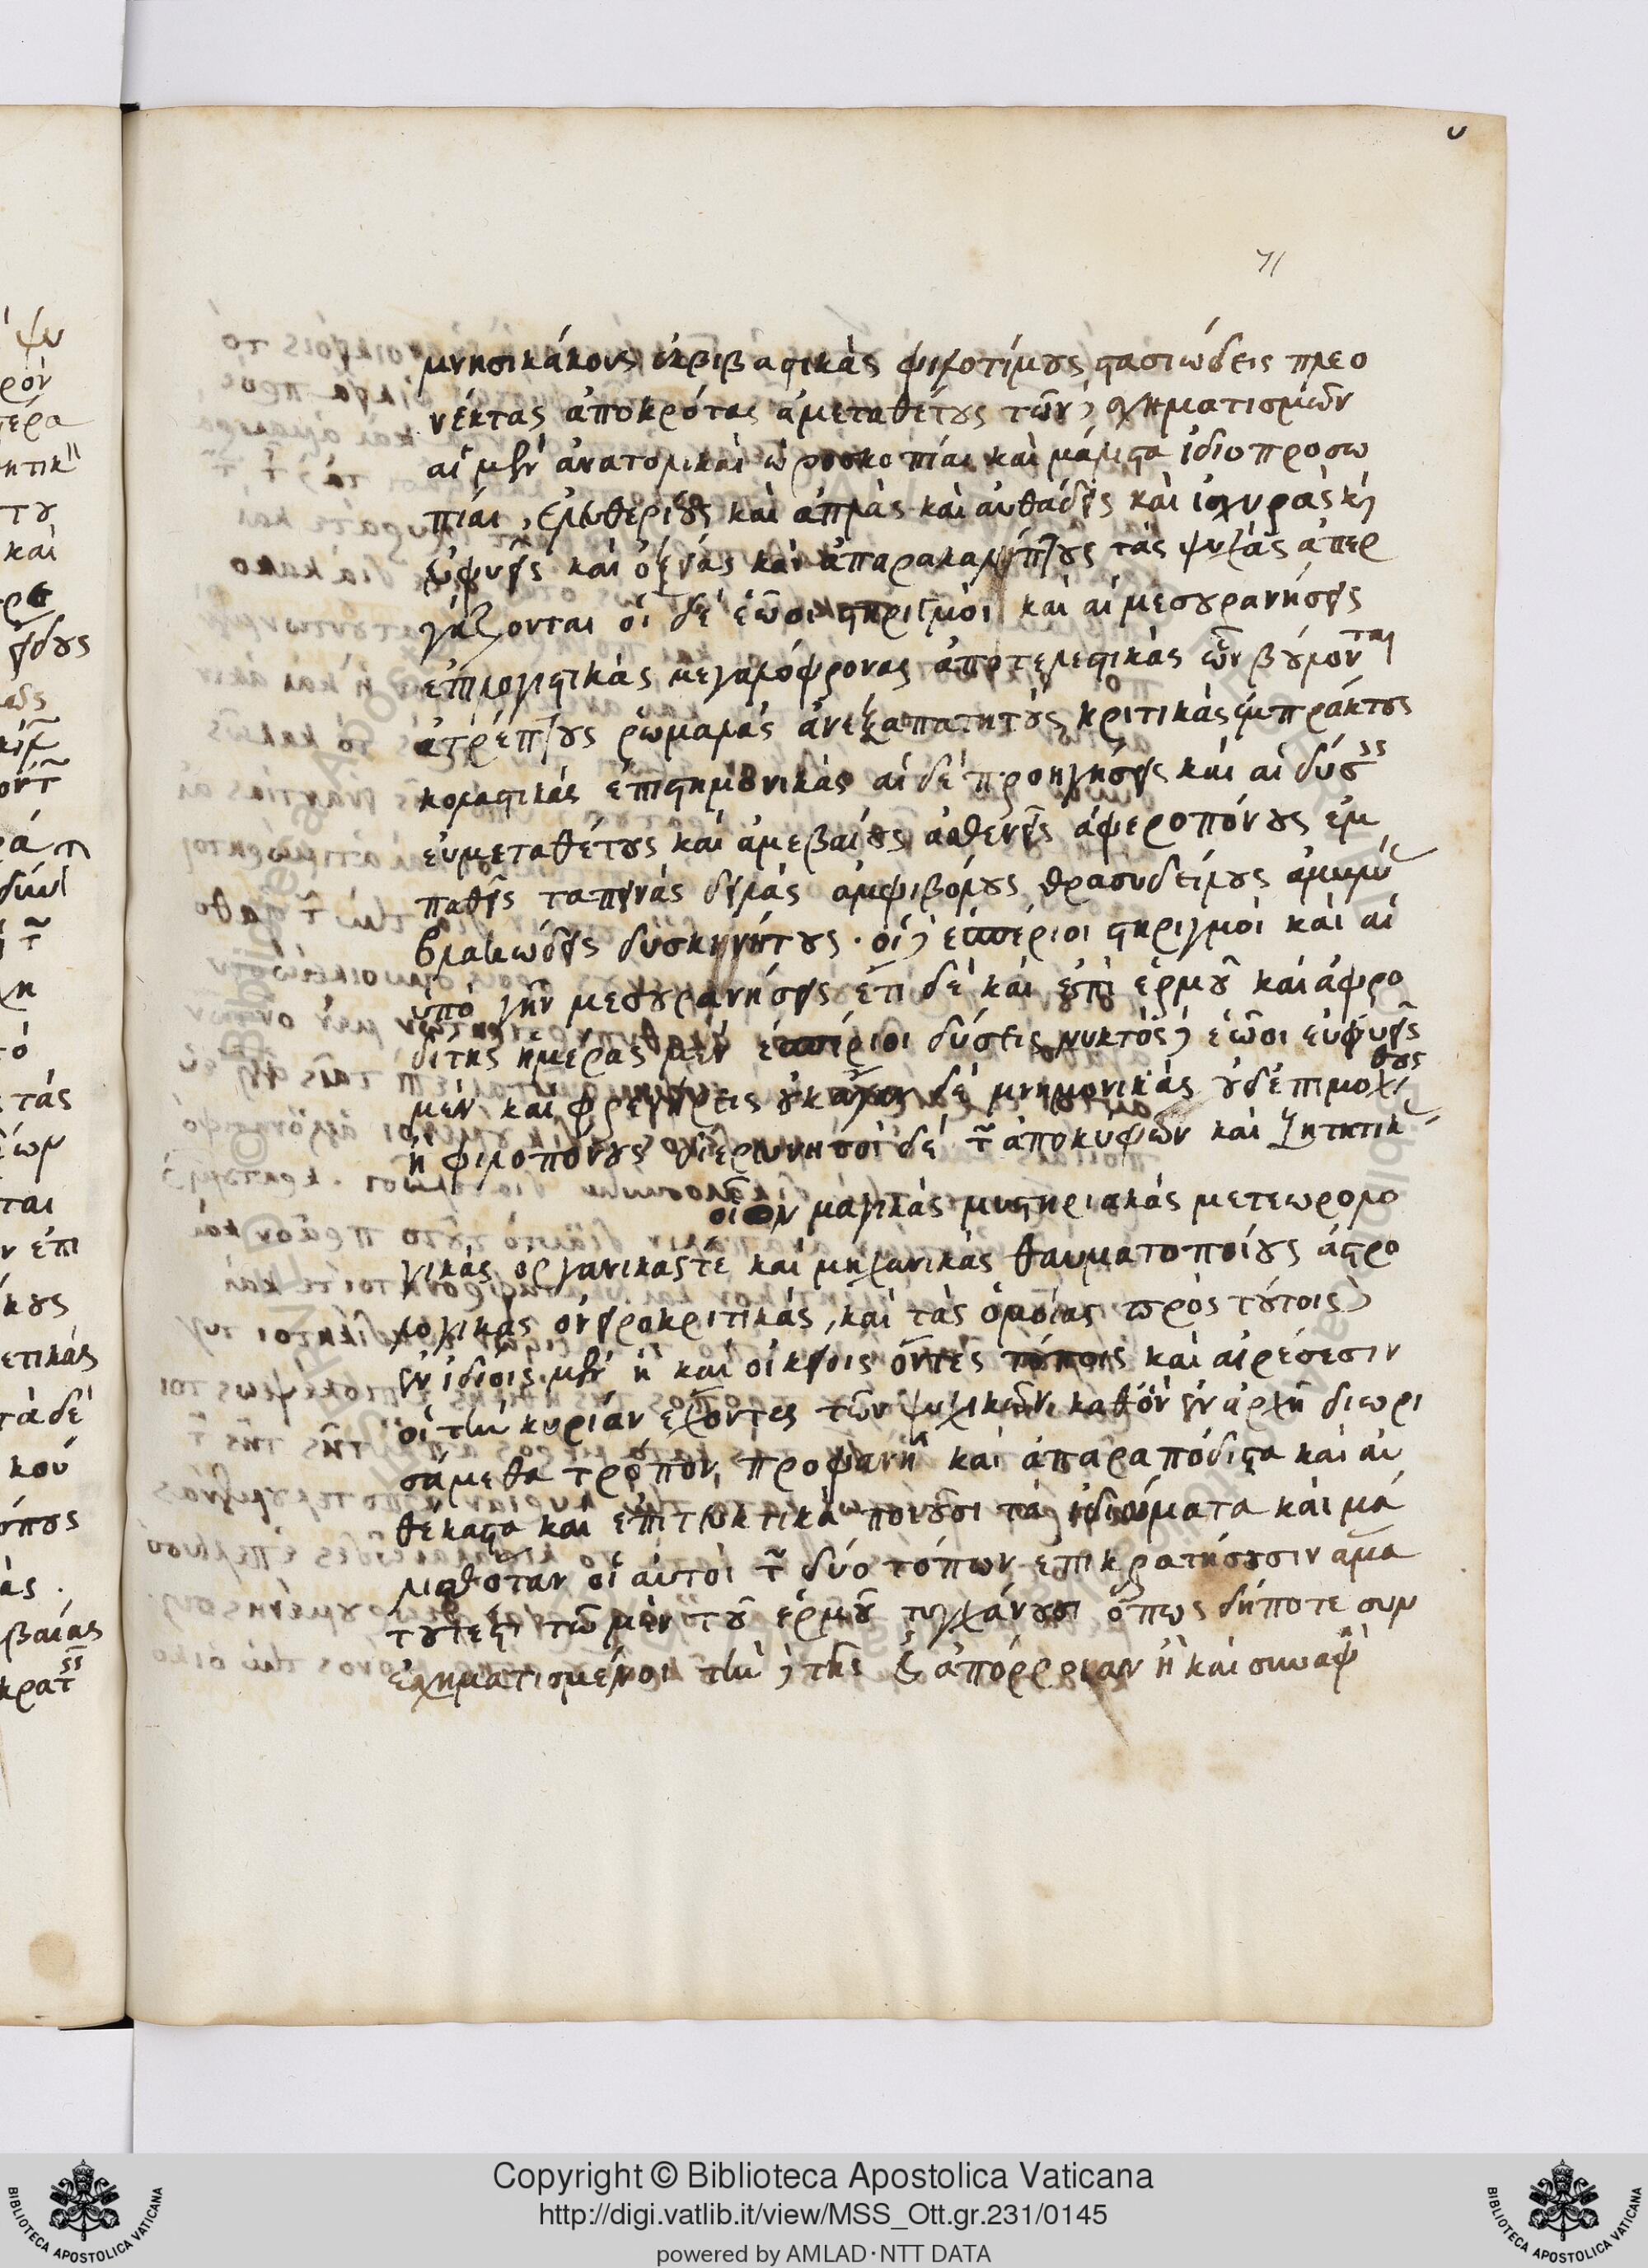 υ
71
μνησικάκους ἐκβιβαστικὰς φιλοτίμους στασιώδεις πλεο
νέκτας ἀποκρότας ἀμεταθέτους τῶν δὲ σχηματισμῶν
αἱ μὲν ἀνατολικαὶ ὡροσκοπίαι καὶ μάλιστα ἰδιοπροσω
πίαι, ἐλευθερίους καὶ ἁπλὰς καὶ αὐθάδεις καὶ ἰσχυρὰς καὶ
εὐφυεῖς καὶ ὀξείας καὶ ἀπαρακαλύπτους τὰς ψυχὰς ἀπερ
γάζονται οἱ δὲ ἑῶοι στηριγμοὶ καὶ αἱ μεσουρανήσεις
ἐπιλογιστικὰς μεγαλόφρονας ἀποτελεστικὰς ὧν βούλονται
ἀτρέπτους ῥωμαλάς ἀνεξαπατητους κριτικὰς ἐμπράκτους
κολαστικὰς ἐπιστημονικὰς αἱ δὲ προηγήσεις καὶ αἱ δύσεις
εὐμεταθέτους καὶ ἀμεβαίους ἀσθενεῖς ἀφεροπόνους ἐμ
παθεῖς ταπεινὰς δειλὰς ἀμφιβόλους θρασυδείλους
βλακώδεις δυσκινήτους · οἱ δὲ ἑσπέριοι στηριγμοὶ καὶ αἱ
ὑπὸ γῆν μεσουρανήσεις ἔτι δὲ καὶ ἐπὶ ἑρμοῦ καὶ ἀφρο
δίτης ἡμέρας μὲν ἑσπέριοι δύσεις νυκτὸς δὲ ἑῶοι εὐφυεῖς
μὲν καὶ φρενήρεις οὐκ ἄγαν δὲ μνημονικὰς οὐδ' ἐπιμόχθους
ἢ φιλοπόνους διερευνησοὶ δὲ τῶν ἀποκύφων καὶ ζητητικ
οἷον μαγικὰς μυστηριακὰς μετεωρολο
γικὰς ὀργανικάς τε καὶ μηχανικὰς θαυματοποίους ἀστρο
λογικὰς ὀνειροκριτικάς, καὶ τὰς ὁμοίας πρὸς τούτοις δὲ
ἐν ἰδίοις μὲν ἢ καὶ οἰκείοις ὄντες τόποις καὶ αἱρέσεσιν
οἱ τὴν κυρίαν ἔχοντες τῶν ψυχικῶν, καθ' ὃν ἐν ἀρχῇ διωρι
σάμεθα τρόπον, προφανῆ καὶ ἀπαραπόδιστα καὶ αὐ
θέκαστα καὶ ἐπιτευκτικὰ ποιοῦσι τὰ ἰδιώματα καὶ μά
λισθ' ὅταν οἱ αὐτοὶ τῶν δύο τόπων ἐπικρατήσουσιν ἅμα
τουτέστι τῷ μὲν τοῦ ἑρμοῦ τυγχάνουσι ὅπως δήποτε συν
ἐσχηματισμένοι τὴν δὲ τῆς ☾ ἀπόρροιαν ἢ καὶ συναφὴ
Copyright © Biblioteca Apostolica Vaticana
http://digi.vatlib.it/view/MSS_Ott.gr.231/0145
powered by AMLAD·NTT DATA
BIBLIOTECA APOSTOLICA VATICANA
BIBLIOTECA APOSTOLICA VATICANA